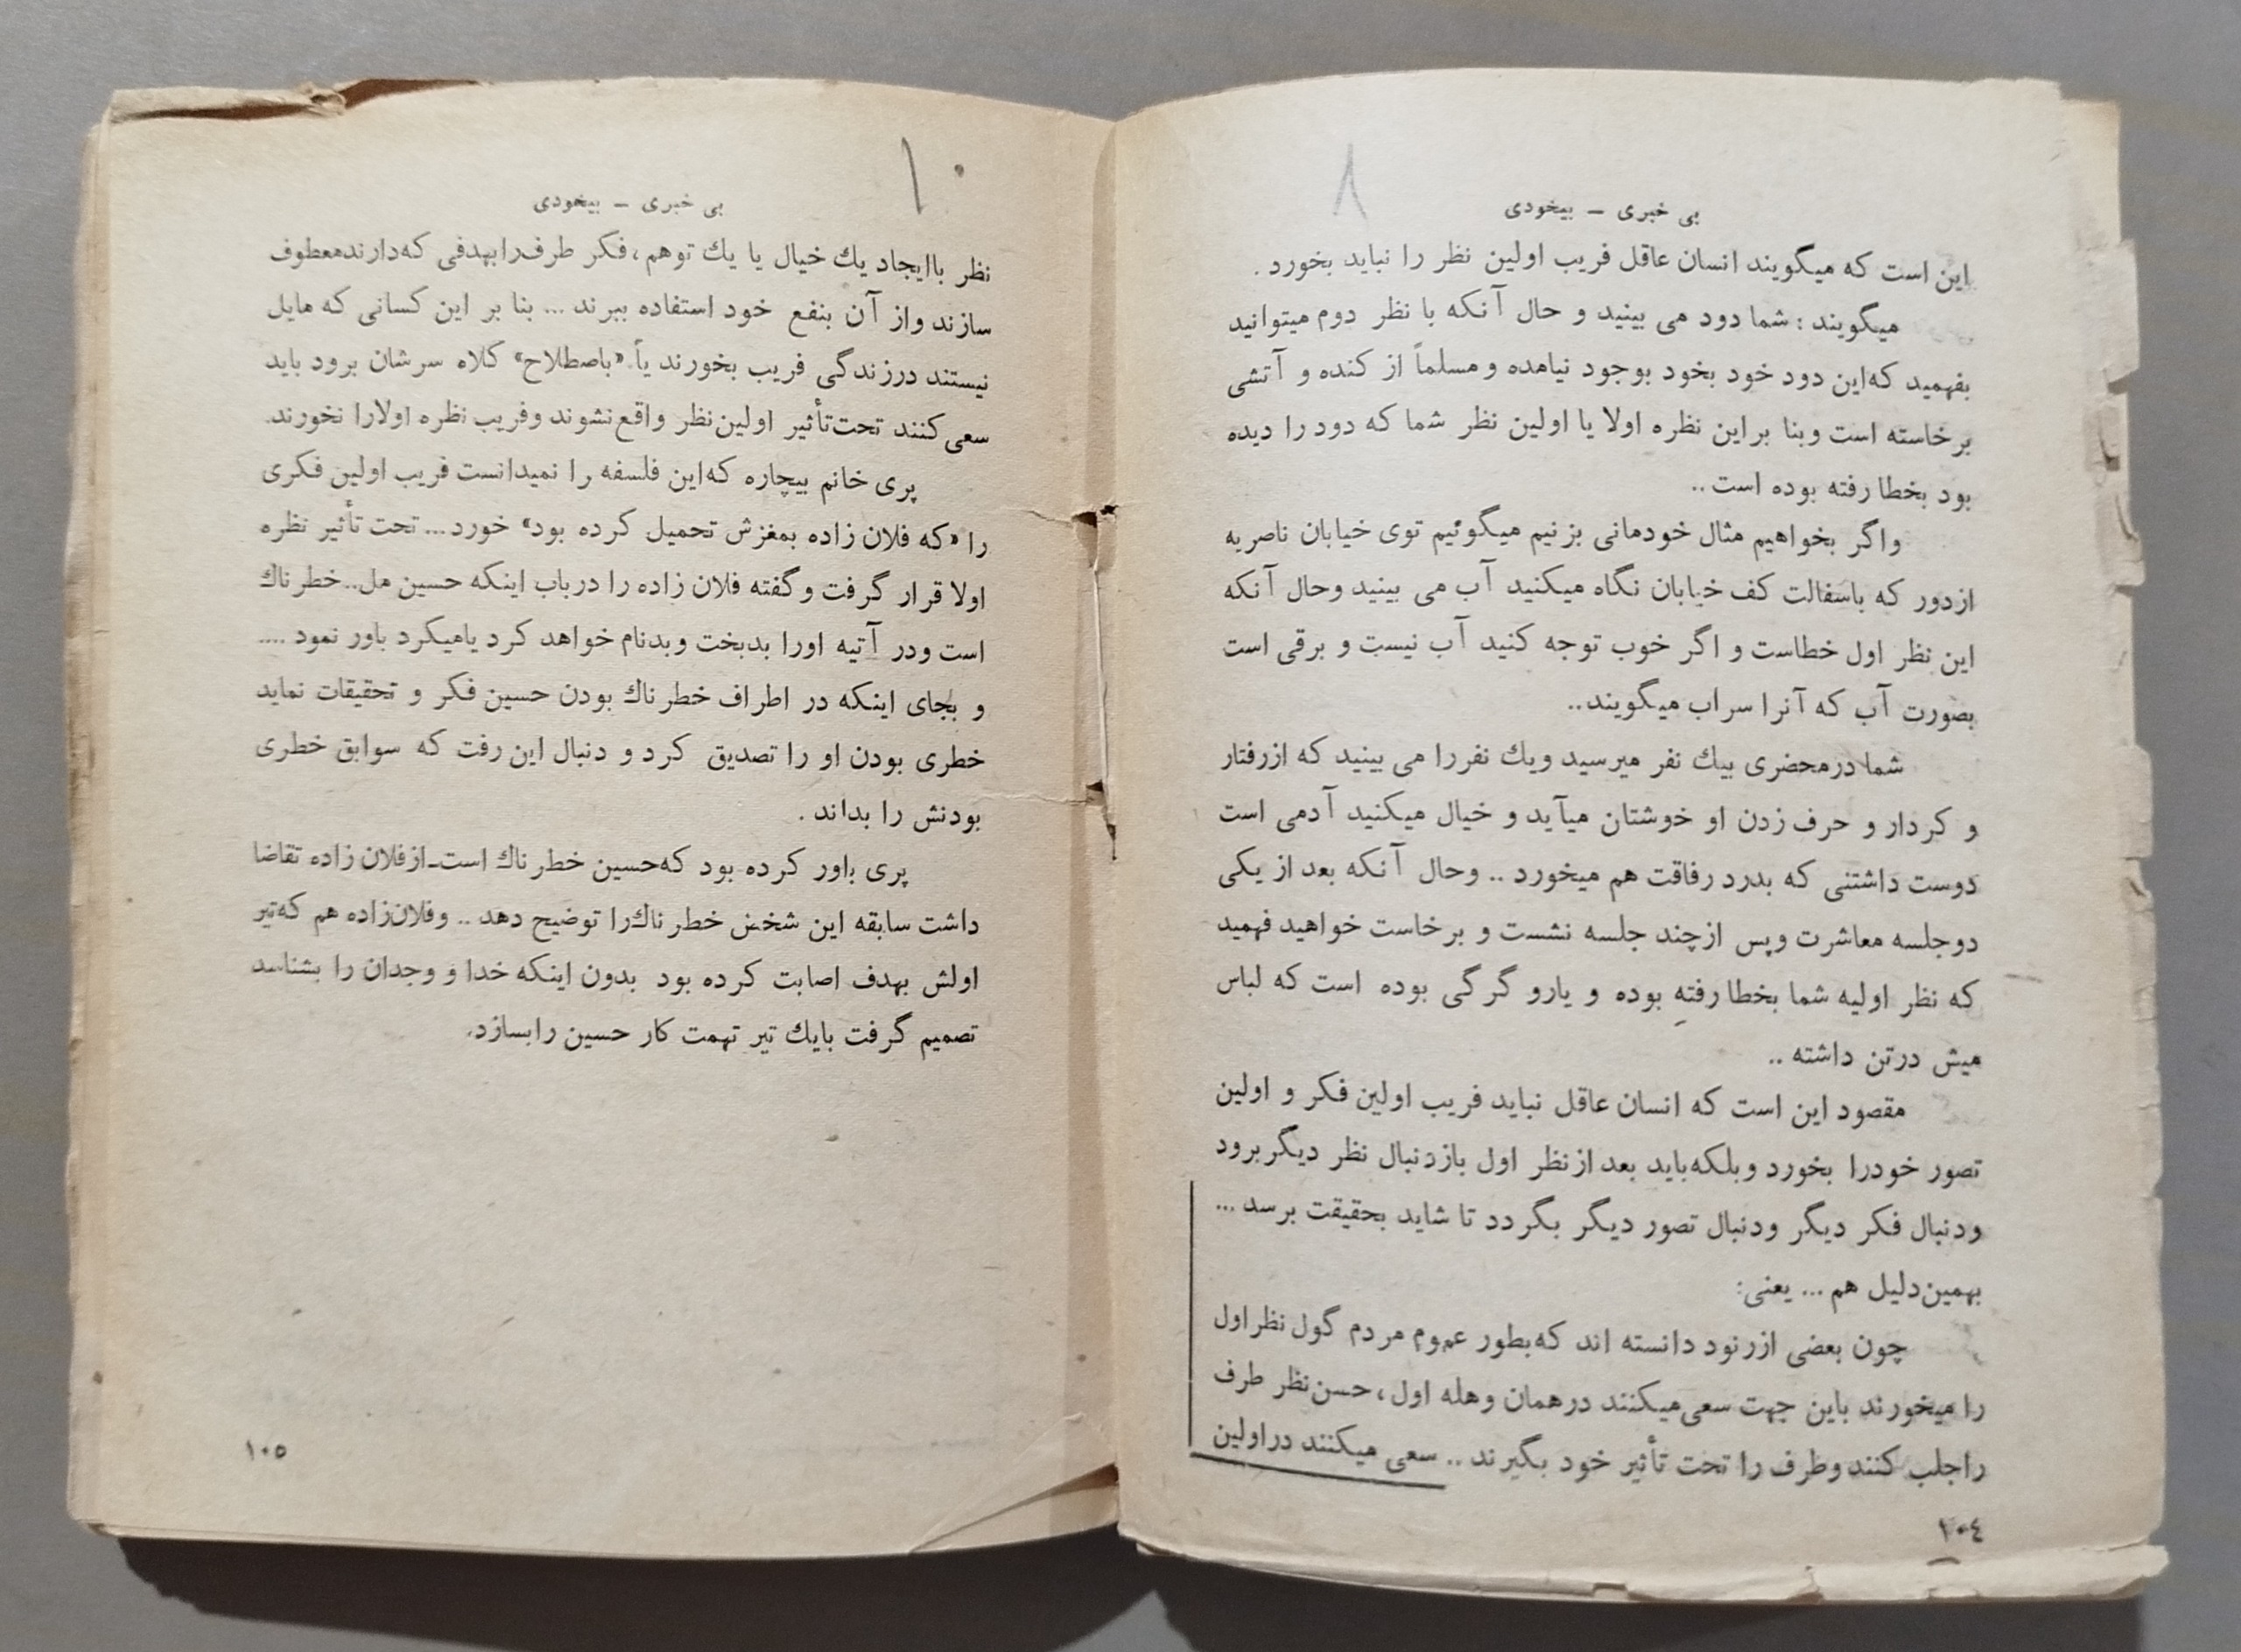 ۸
بی خبری – بیخودی
این است که میگویند انسان عاقل فریب اولین نظر را نباید بخورد.
میگویند: شما دود می بینید و حال آنکه با نظر دوم میتوانید
بفهمید که این دود خود بخود بوجود نیامده و مسلماً از کنده و آتشی
برخاسته است و بنا براین نظره اولا یا اولین نظر شما که دود را دیده
بود بخطا رفته بوده است..
واگر بخواهیم مثال خودمانی بزنیم میگوئیم توی خیابان ناصریه
ازدور که باسفالت کف خیابان نگاه میکنید آب می بینید وحال آنکه
این نظر اول خطاست و اگر خوب توجه کنید آب نیست و برقی است
بصورت آب که آنرا سراب میگویند..
شما درمحضری بیك نفر میرسید ویك نفررا می بینید که ازرفتار
و کردار و حرف زدن او خوشتان میآید و خیال میکنید آدمی است
دوست داشتنی که بدرد رفاقت هم میخورد .. وحال آنکه بعد از یکی
دوجلسه معاشرت وپس ازچند جلسه نشست و برخاست خواهید فهمید
که نظر اولیه شما بخطا رفته بوده و یارو گرگی بوده است که لباس
میش درتن داشته ..
مقصود این است که انسان عاقل نباید فریب اولین فکر و اولین
تصور خودرا بخورد وبلکه باید بعد ازنظر اول بازدنبال نظر دیگر برود
ودنبال فکر دیگر ودنبال تصور دیگر بگردد تا شاید بحقیقت برسد ...
بهمین دلیل هم ... یعنی:
چون بعضی ازرنود دانسته اند که بطور عموم مردم گول نظر اول
را میخورند باین جهت سعی میکنند درهمان وهله اول، حسن نظر طرف
راجلب کنند وطرف را تحت تأثیر خود بگیرند .. سعی میکنند دراولین
۱۰٤
۱۰
بی خبری – بیخودی
نظر باایجاد یك خیال یا یك توهم، فکر طرف رابهدفی که دارند معطوف
سازند واز آن بنفع خود استفاده ببرند ... بنا بر این کسانی که مایل
نیستند درزندگی فریب بخورند یا «باصطلاح» کلاه سرشان برود باید
سعی کنند تحت تأثیر اولین نظر واقع نشوند وفریب نظره اولارا نخورند.
پری خانم بیچاره که این فلسفه را نمیدانست فریب اولین فکری
را «که فلان زاده بمغزش تحمیل کرده بود» خورد... تحت تأثیر نظره
اولا قرار گرفت و گفته فلان زاده را درباب اینکه حسین مل.. خطرناك
است ودر آتیه اورا بدبخت وبدنام خواهد کرد یامیکرد باور نمود ....
و بجای اینکه در اطراف خطرناك بودن حسین فکر و تحقیقات نماید
خطری بودن او را تصدیق کرد و دنبال این رفت که سوابق خطری
بودنش را بداند .
پری باور کرده بود که حسین خطرناك است ـ از فلان زاده تقاضا
داشت سابقه این شخص خطرناك را توضیح دهد .. وفلان زاده هم که تیر
اولش بهدف اصابت کرده بود بدون اینکه خدا و وجدان را بشناسد
تصمیم گرفت بایك تیر تهمت کار حسین رابسازد.
۱۰٥